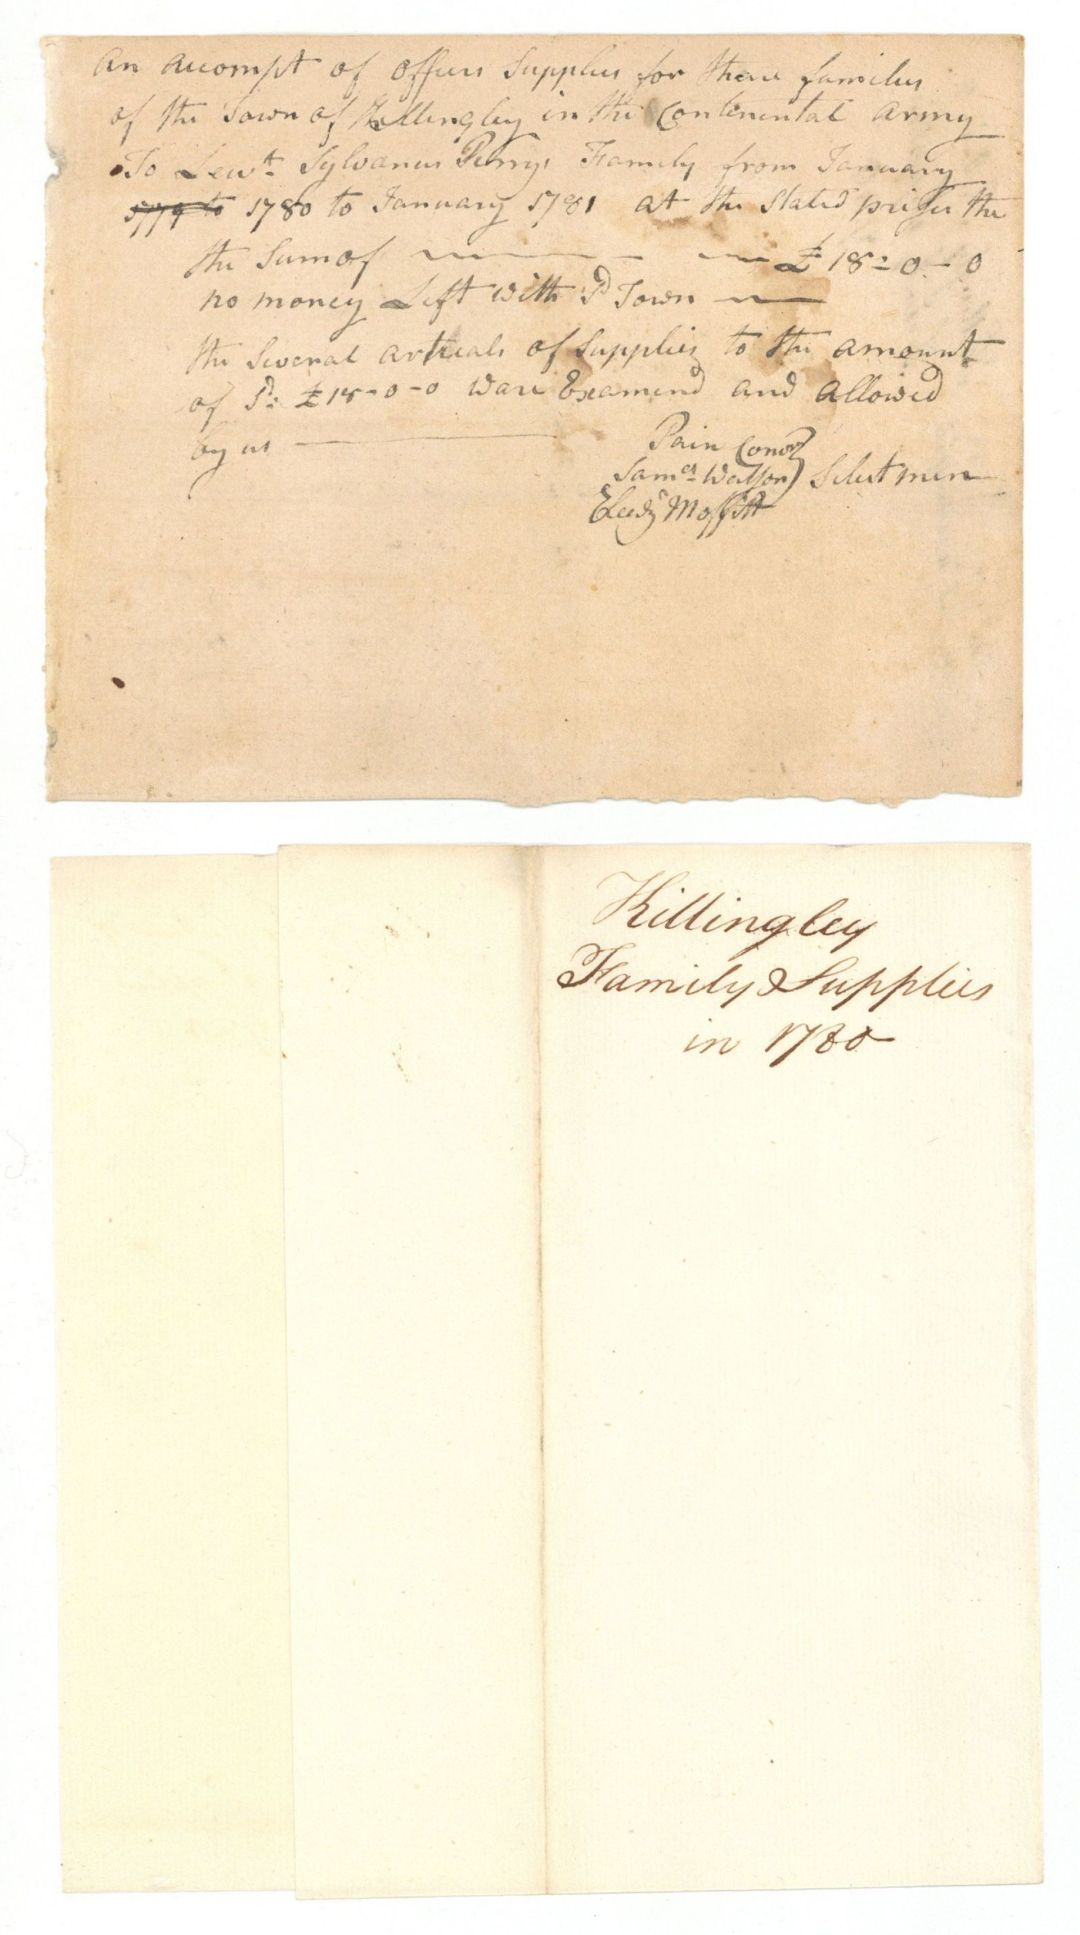 An Accompt of Officers Supplies for thare families
of the Town of Killingley in the Contenental Army
To Lewt. Sylvanus Perrys Family from January
1779 to 1780 to January 1781 at the Stated prises the
the Sum of £18-0-0
no money Left with sd Town
the Several articals of Supplies to the amount
of sd: £18-0-0 ware Examend and Allowed
by us
Pain Convs
Saml. Watson Selectmen
Moffitt
Killingley
Family Supplies
in 1780